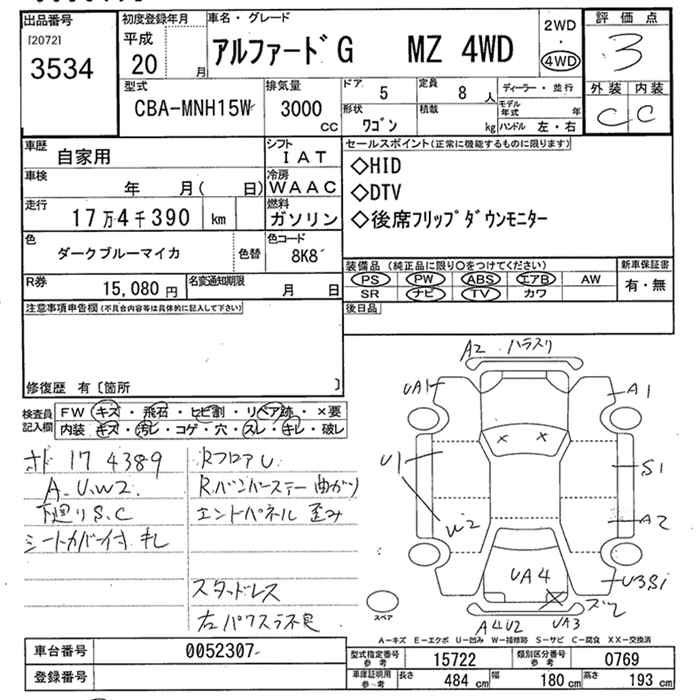 出品番号
[2072]
3534
初度登録年月
平成
20
月
車名・グレード
アルファードG MZ 4WD
2WD
・
4WD
評価点
3
外装 内装
C C
型式
CBA-MNH15W
排気量
3000
cc
ドア
5
定員
8
人
形状
ワゴン
積載
kg
ディーラー・並行
モデル年式
年
ハンドル 左・右
車歴
自家用
シフト
IAT
車検
年 月( 日)
冷房
WAAC
走行
17万4千390 km
燃料
ガソリン
色
ダークブルーマイカ
色替
色コード
8K8
R券
15,080 円
名変通知期限
月 日
セールスポイント(正常に機能するものに限ります)
◇HID
◇DTV
◇後席フリップダウンモニター
装備品(純正品に限り○をつけてください)
PS PW ABS エアB AW
SR ナビ TV カワ
新車保証書
有・無
後日品
注意事項申告欄(不具合内容等は具体的に記入して下さい)
修復歴 有〔箇所 〕
検査員記入欄
FW キズ・飛石・ヒビ割・リペア跡・×要
内装 キズ・汚レ・コゲ・穴・スレ・キレ・破レ
17 4389
A.U.W2.
下廻りS.C
シートカバー付 キレ
RフロアU
Rバンパーステー曲がり
エンドパネル 歪み
スタッドレス
左パワスラ不良
A2
UA1
A1
U1
S1
A2
W2
UA4
U3S1
UA3
A4U2
スペア
A-キズ E-エクボ U-凹み W-補修跡 S-サビ C-腐食 XX-交換済
車台番号
0052307
登録番号
型式指定番号
参考
15722
類別区分番号
参考
0769
車庫証明用
参考
長さ
484 cm
幅
180 cm
高さ
193 cm